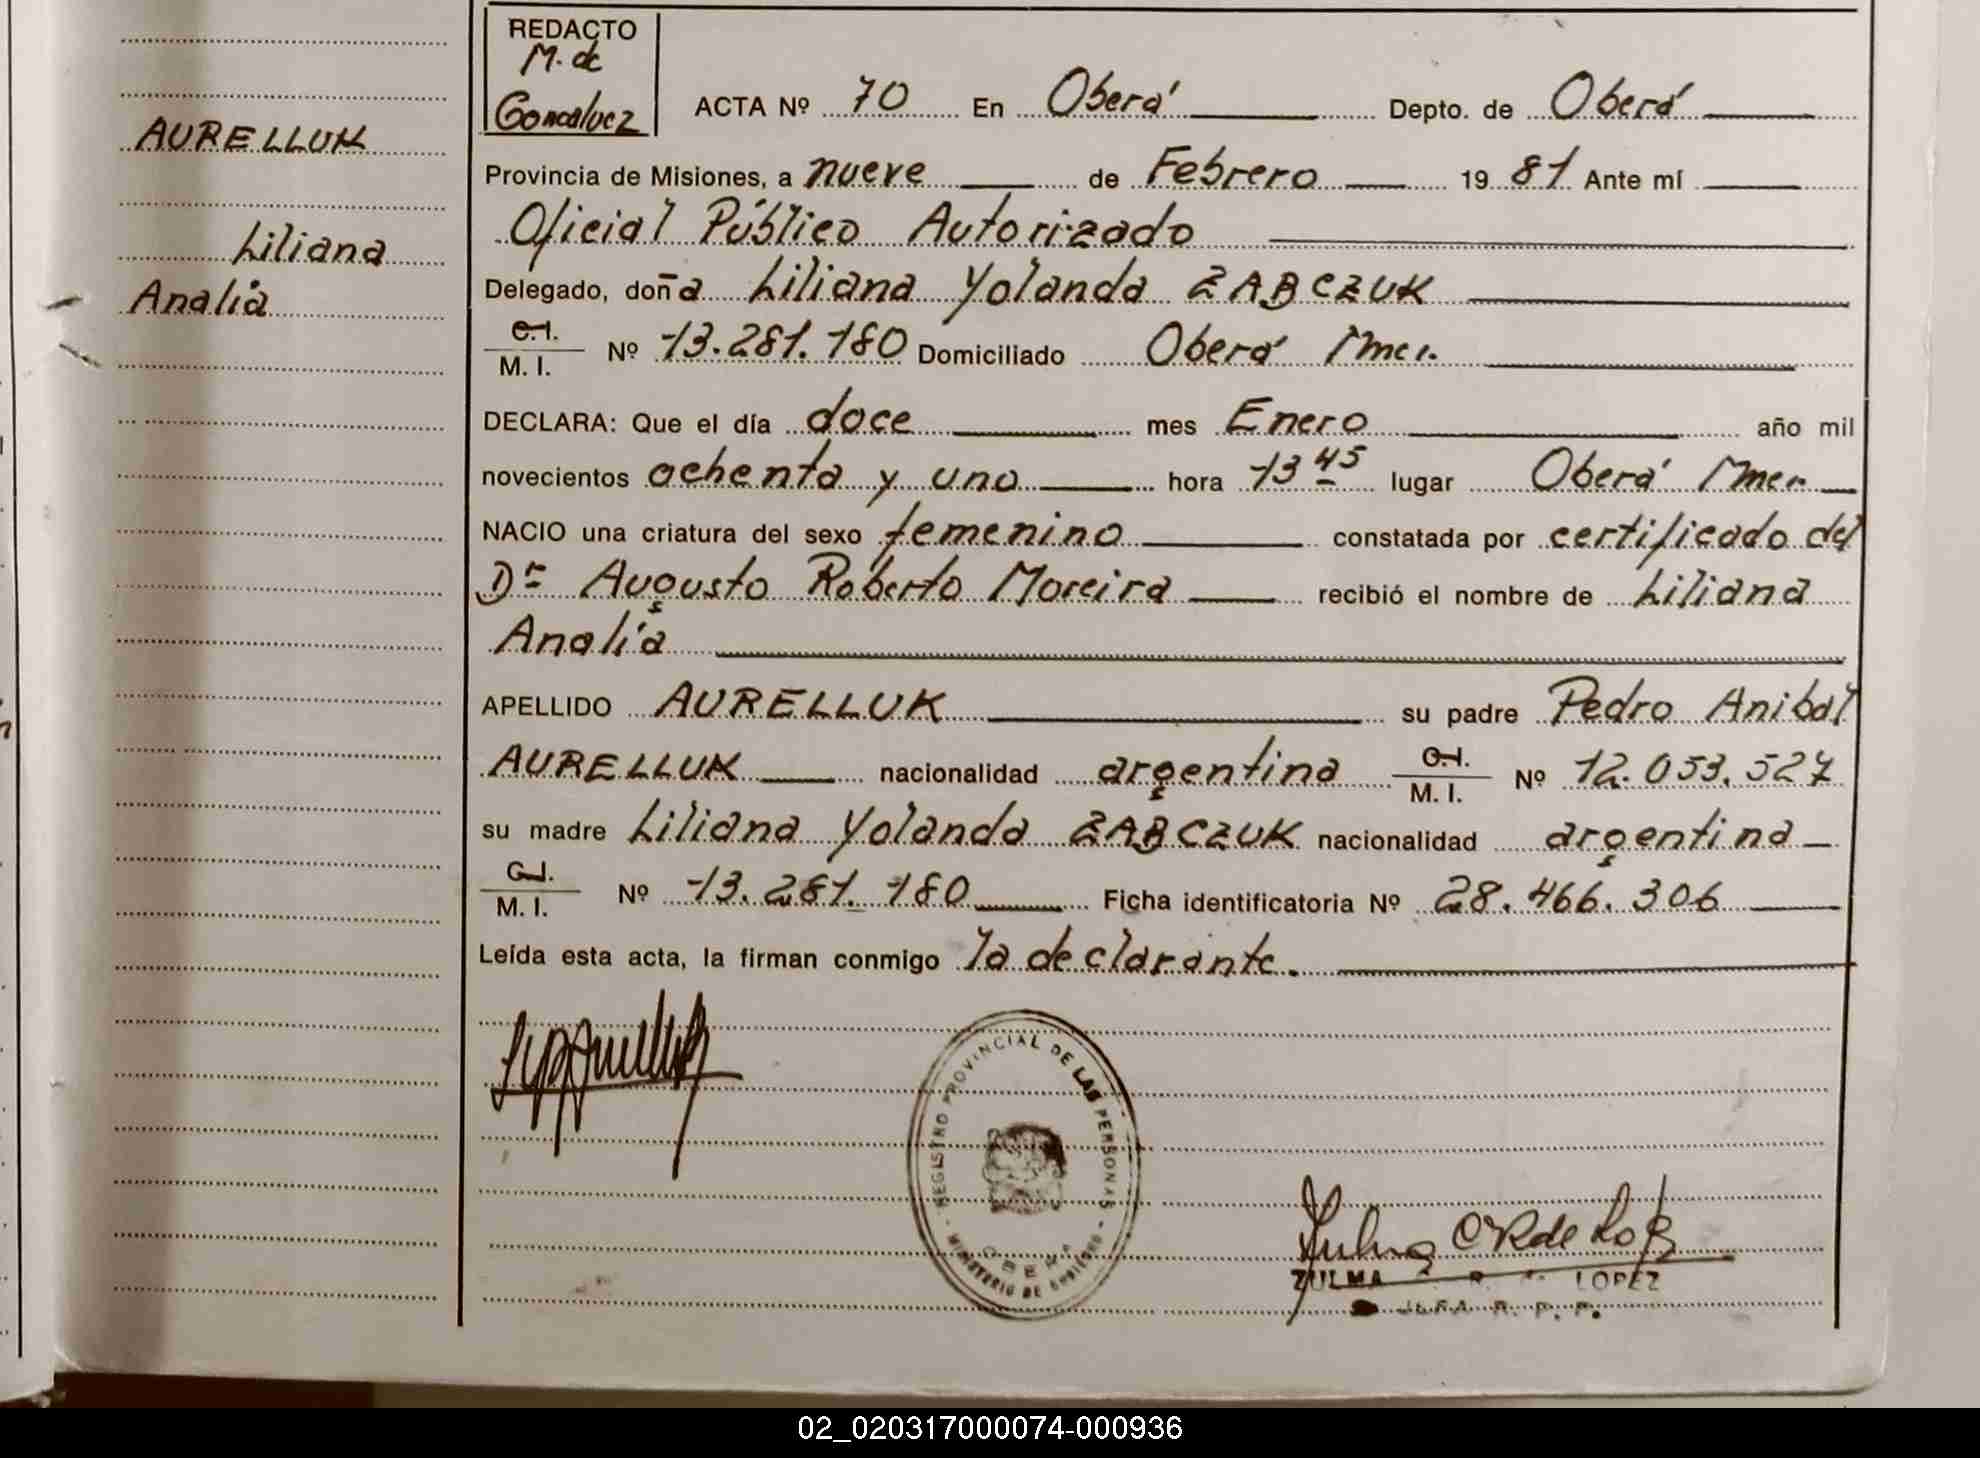 REDACTO
M. de
Goncalvez
ACTA Nº 70 En Oberá Depto. de Oberá
AURELLUK
Provincia de Misiones, a nueve de Febrero 1981 Ante mí
Oficial Público Autorizado
Liliana
Analía
Delegado, doña Liliana Yolanda ZABCZUK
C.I.
M. I. Nº 13.281.180 Domiciliado Oberá Mnes.
DECLARA: Que el día doce mes Enero año mil
novecientos ochenta y uno hora 13 45 lugar Oberá Mnes.
NACIO una criatura del sexo femenino constatada por certificado del
Dr Augusto Roberto Moreira recibió el nombre de Liliana
Analía
APELLIDO AURELLUK su padre Pedro Anibal
AURELLUK nacionalidad argentina C.I. M. I. Nº 12.053.527
su madre Liliana Yolanda ZABCZUK nacionalidad argentina
C.I.
M. I. Nº 13.281.180 Ficha identificatoria Nº 28.466.306
Leída esta acta, la firman conmigo la declarante.
REGISTRO PROVINCIAL DE LAS PERSONAS
MINISTERIO DE GOBIERNO
OBERA
ZULMA R. LOPEZ
JEFA R. P. P.
02_020317000074-000936